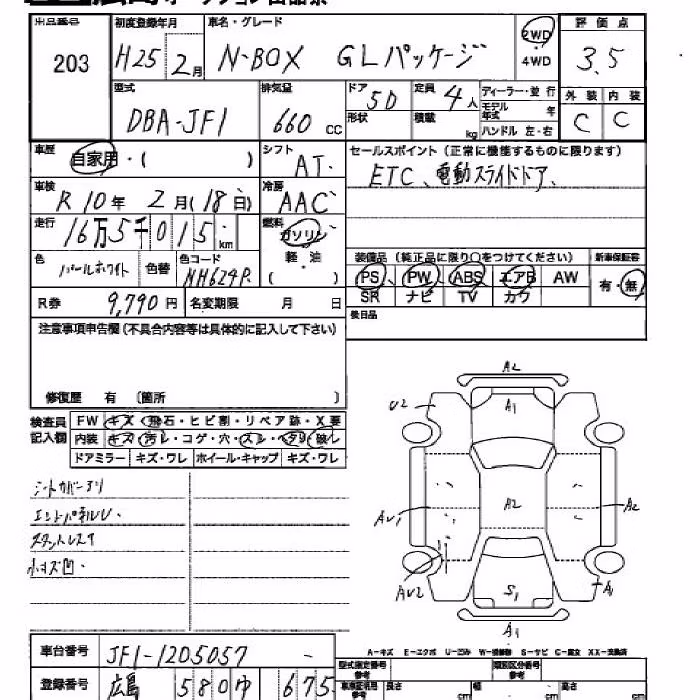 広島オークション出品票
出品番号 初度登録年月 車名・グレード 評価点
203 H25 2月 N-BOX GLパッケージ 2WD 4WD 3.5
型式 排気量 ドア 定員 ディーラー・並行 外装 内装
DBA-JF1 660cc 5D 4人 モデル年式 年 C C
形状 積載 kg ハンドル 左・右
車歴 シフト セールスポイント (正常に機能するものに限ります)
自家用・( ) AT. ETC、電動スライドドア、
車検 冷房
R 10年 2月(18日) AAC
走行 燃料
16万5千015km ガソリン
軽・油
( )
色 色替 色コード 装備品 (純正品に限り○をつけてください) 新車保証書
パールホワイト NH624P PS PW ABS エアB AW 有・無
SR ナビ TV カワ
R券 9,790円 名変期限 月 日
後日品
注意事項申告欄(不具合内容等は具体的に記入して下さい)
修復歴 有 〔箇所 〕
検査員記入欄 FW キズ・飛石・ヒビ割・リペア跡・X要
内装 キズ・汚レ・コゲ・穴・スレ・ヘタリ・破レ
ドアミラー キズ・ワレ ホイール・キャップ キズ・ワレ
シートカバーアリ
スタットレス
小キズ凹、
A2
U2 A1
AU1 A2 A2
AU2 S1 A1
A1
A-キズ E-エクボ U-凹ミ W-補修跡 S-サビ C-腐食 XX-交換済
車台番号 JF1-1205057
型式指定番号 類別区分番号
参考 参考
登録番号 広島 580 ゆ 675
車検証明書参考 長さ cm 幅 cm 高さ cm